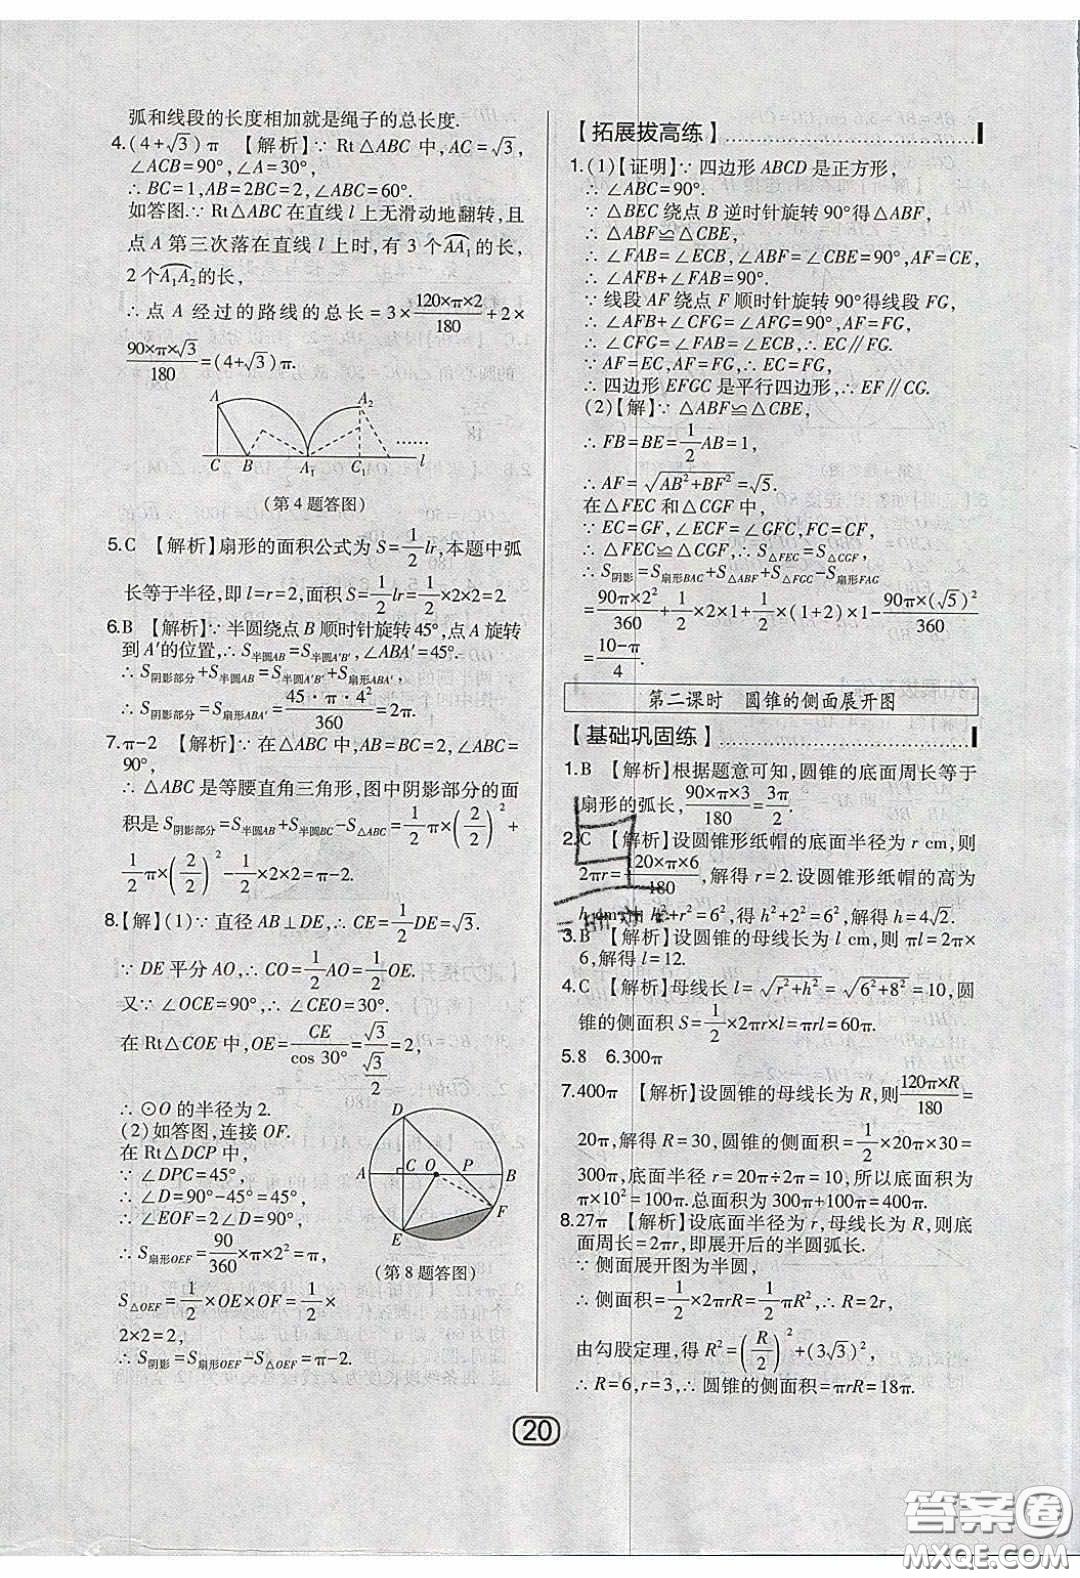 弧和线段的长度相加就是绳子的总长度.
4.(4+√3)π 【解析】∵ Rt△ABC 中,AC=√3,
∠ACB=90°,∠A=30°,
∴ BC=1,AB=2BC=2,∠ABC=60°.
如答图.∵ Rt△ABC 在直线 l 上无滑动地翻转,且
点 A 第三次落在直线 l 上时,有 3 个AA₁的长,
2 个A₁A₂的长,
∴ 点 A 经过的路线的总长=3×120×π×2/180+2×
90×π×√3/180=(4+√3)π.
A A₂
C B A₁ C₁ …… l
(第 4 题答图)
5.C 【解析】扇形的面积公式为 S=1/2lr,本题中弧
长等于半径,即 l=r=2,面积 S=1/2lr=1/2×2×2=2.
6.B 【解析】∵ 半圆绕点 B 顺时针旋转 45°,点 A 旋转
到 A′的位置,∴ S半圆AB=S半圆A′B′,∠ABA′=45°.
∴ S阴影部分+S半圆AB=S半圆A′B′+S扇形ABA′,
∴ S阴影部分=S扇形ABA′=45·π·4²/360=2π.
7.π-2 【解析】∵ 在△ABC 中,AB=AC=2,∠ABC=
90°,
∴ △ABC 是等腰直角三角形,图中阴影部分的面
积是 S阴影部分=S半圆AB+S半圆BC-S△ABC=1/2π×(2/2)²+
1/2π×(2/2)²-1/2×2×2=π-2.
8.【解】(1)∵ 直径 AB⊥DE,∴ CE=1/2DE=√3.
∵ DE 平分 AO,∴ CO=1/2AO=1/2OE.
又∵ ∠OCE=90°,∴ ∠CEO=30°.
在 Rt△COE 中,OE=CE/cos 30°=√3/(√3/2)=2,
∴ ⊙O 的半径为 2.
(2)如答图,连接 OF.
在 Rt△DCP 中,
∵ ∠DPC=45°,
∴ ∠D=90°-45°=45°,
∴ ∠EOF=2∠D=90°,
∴ S扇形OEF=90/360×π×2²=π,
S△OEF=1/2×OE×OF=1/2×
2×2=2,
∴ S阴影=S扇形OEF-S△OEF=π-2.
D
A C O P B
F
E
(第 8 题答图)
【拓展拔高练】
1.(1)【证明】∵ 四边形 ABCD 是正方形,
∴ ∠ABC=90°.
∵ △BEC 绕点 B 逆时针旋转 90°得△ABF,
∴ △ABF≌△CBE,
∴ ∠FAB=∠ECB,∠ABF=∠CBE=90°,AF=CE,
∴ ∠AFB+∠FAB=90°.
∵ 线段 AF 绕点 F 顺时针旋转 90°得线段 FG,
∴ ∠AFB+∠CFG=∠AFG=90°,
∴ ∠CFG=∠FAB=∠ECB,∴ EC∥FG.
∵ AF=EC,AF=FG,∴ EC=FG,
∴ 四边形 EFGC 是平行四边形,∴ EF∥CG.
(2)【解】∵ △ABF≌△CBE,
∴ FB=BE=1/2AB=1,
∴ AF=√(AB²+BF²)=√5.
在△FEC 和△CGF 中,
∵ EC=GF,∠ECF=∠GFC,FC=CF,
∴ △FEC≌△CGF,∴ S△FEC=S△CGF,
∴ S阴影=S扇形BAC+S△ABF+S△FGC-S扇形FAG
=90π×2²/360+1/2×2×1+1/2×(1+2)×1-90π×(√5)²/360
=(10-π)/4.
第二课时 圆锥的侧面展开图
【基础巩固练】
1.B 【解析】根据题意可知,圆锥的底面周长等于
扇形的弧长,90×π×3/180=3π/2.
2.C 【解析】设圆锥形纸帽的底面半径为 r cm,则
2πr=120×π×6/180,解得 r=2.设圆锥形纸帽的高为
h cm,h²+r²=6²,得 h²+2²=6²,解得 h=4√2.
3.B 【解析】设圆锥的母线长为 l cm,则 πl=2π×
6,解得 l=12.
4.C 【解析】母线长 l=√(r²+h²)=√(6²+8²)=10,圆
锥的侧面积 S=1/2×2πr×l=πrl=60π.
5.8 6.300π
7.400π 【解析】设圆锥的母线长为 R,则120π×R/180=
20π,解得 R=30,圆锥的侧面积=1/2×20π×30=
300π,底面半径=20π÷2π=10,所以底面积为
π×10²=100π.总面积为 300π+100π=400π.
8.27π 【解析】设底面半径为 r,母线长为 R,则底
面周长=2πr,即展开后的半圆弧长.
∵ 侧面展开图为半圆,
∴ 侧面积=1/2×2πrR=1/2πR²,∴ R=2r,
由勾股定理,得 R²=(R/2)²+(3√3)²,
∴ R=6,r=3,∴ 圆锥的侧面积=πrR=18π.
20
答案圈
MXQE.COM